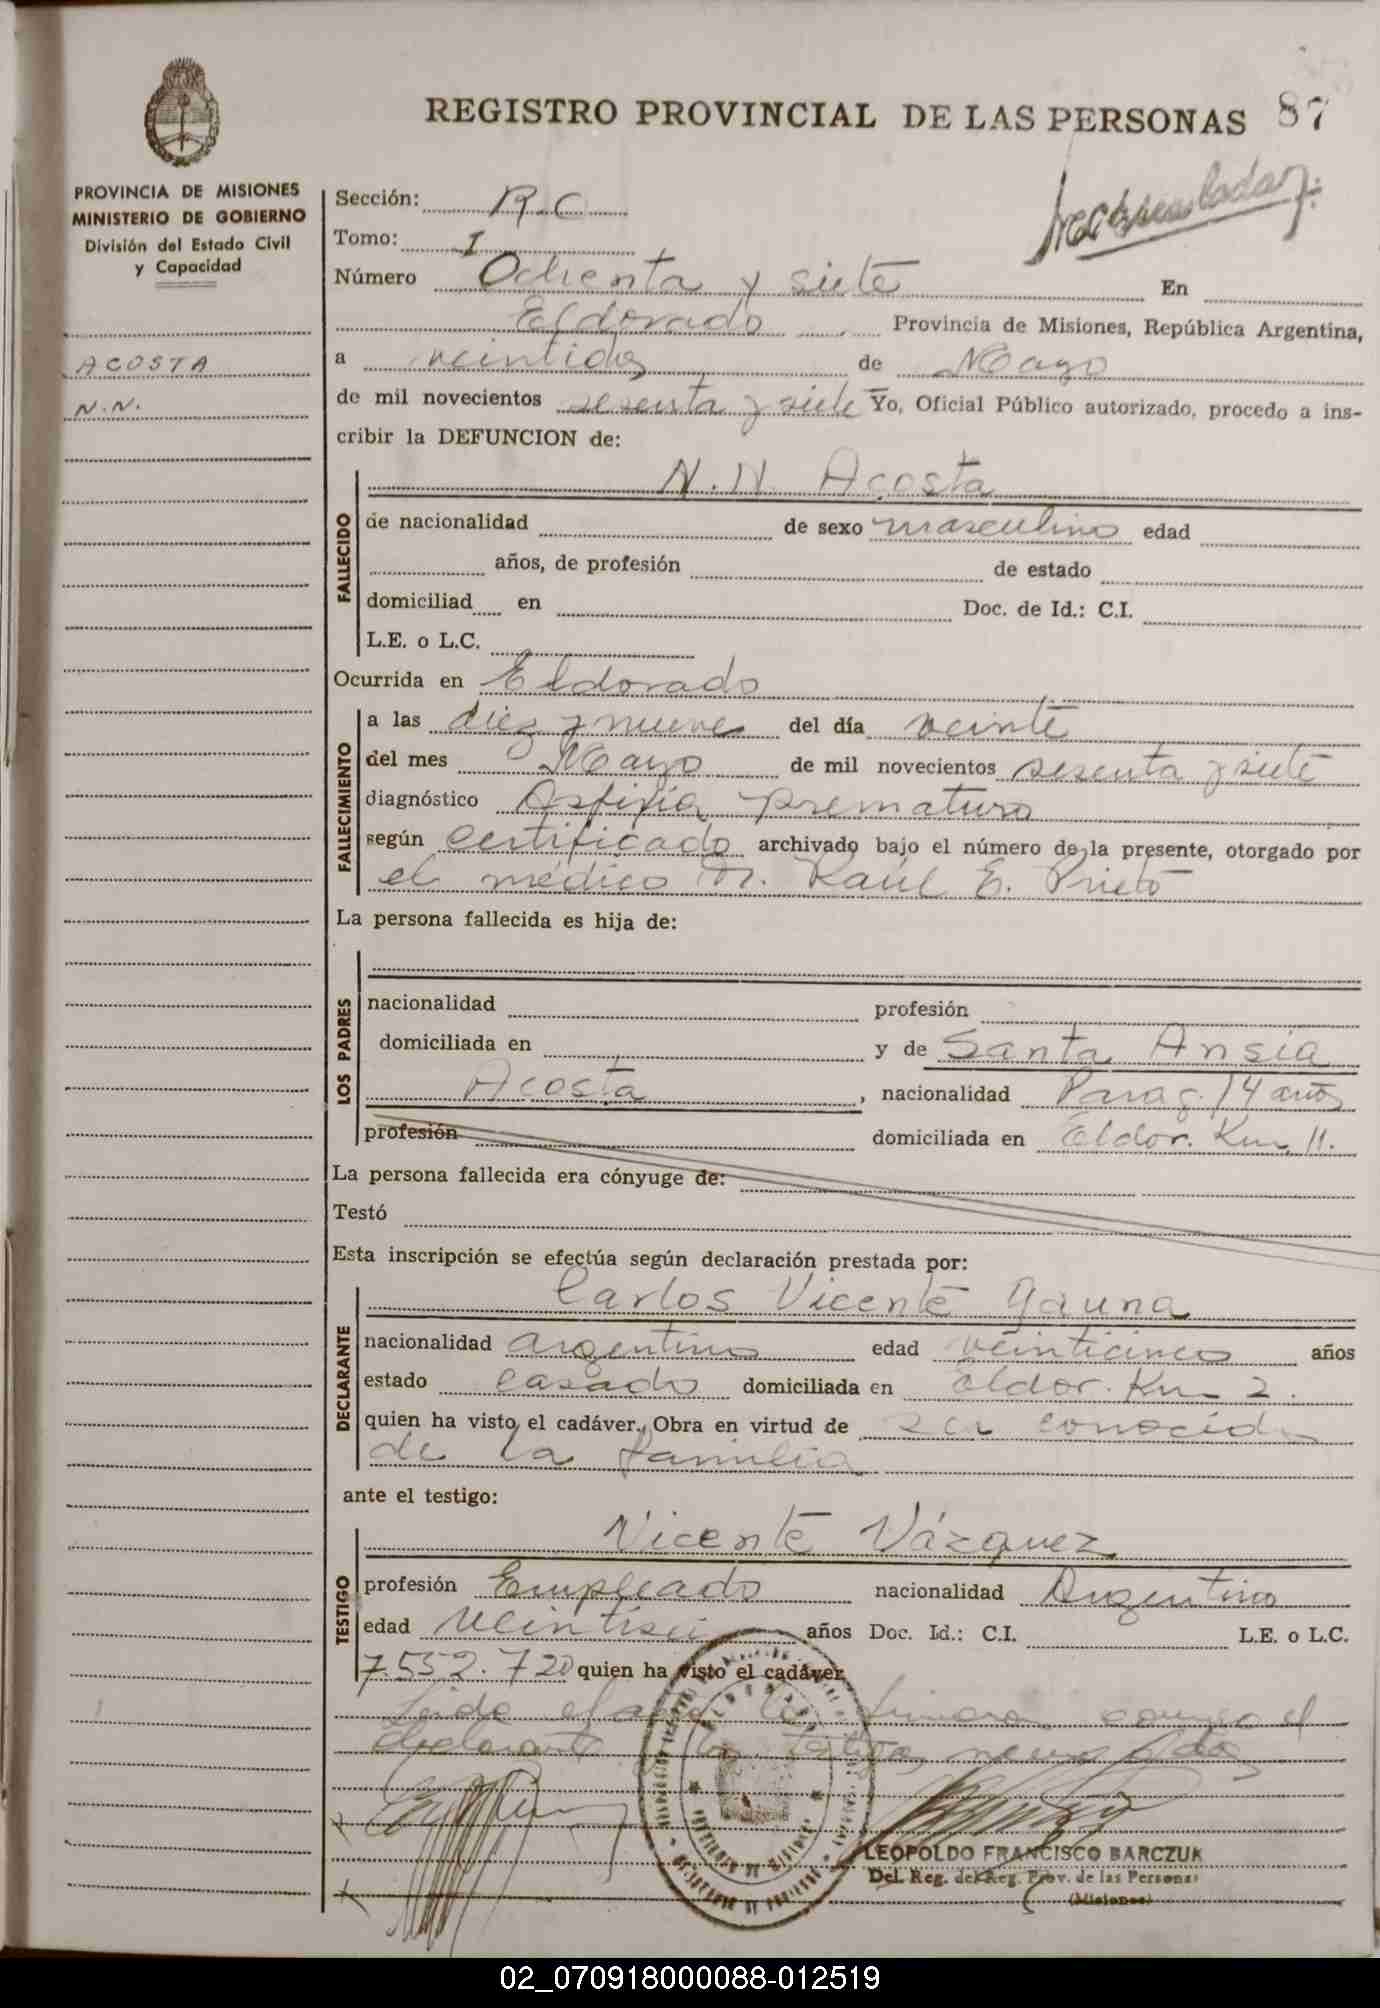 REGISTRO PROVINCIAL DE LAS PERSONAS 87
PROVINCIA DE MISIONES
MINISTERIO DE GOBIERNO
División del Estado Civil
y Capacidad
ACOSTA
N.N.
Sección: R.C
Tomo: I
Número Ochenta y siete En
Eldorado Provincia de Misiones, República Argentina,
a veintidos de Mayo
de mil novecientos sesenta y siete Yo, Oficial Público autorizado, procedo a ins-
cribir la DEFUNCION de:
N.N. Acosta
FALLECIDO
de nacionalidad de sexo masculino edad
años, de profesión de estado
domiciliad en Doc. de Id.: C.I.
L.E. o L.C.
Ocurrida en Eldorado
FALLECIMIENTO
a las diez y nueve del día veinte
del mes Mayo de mil novecientos sesenta y siete
diagnóstico Asfixia prematuro
según certificado archivado bajo el número de la presente, otorgado por
el médico Dr. Raúl E. Prieto
La persona fallecida es hija de:
LOS PADRES
nacionalidad profesión
domiciliada en y de Santa Ansia
Acosta, nacionalidad Parag. 14 años
profesión domiciliada en Eldor. Km 11.
La persona fallecida era cónyuge de:
Testó
Esta inscripción se efectúa según declaración prestada por:
Carlos Vicente Gauna
DECLARANTE
nacionalidad argentino edad veinticinco años
estado casado domiciliada en Eldor. Km 2.
quien ha visto el cadáver. Obra en virtud de ser conocido
de la familia
ante el testigo:
Vicente Vázquez
TESTIGO
profesión Empleado nacionalidad Argentino
edad años Doc. Id.: C.I. L.E. o L.C.
7.552.720 quien ha visto el cadáver
Leida el acta la firman conmigo el
declarante y
LEOPOLDO FRANCISCO BARCZUK
Del. Reg. del Reg. Prov. de las Personas
(Misiones)
02_070918000088-012519